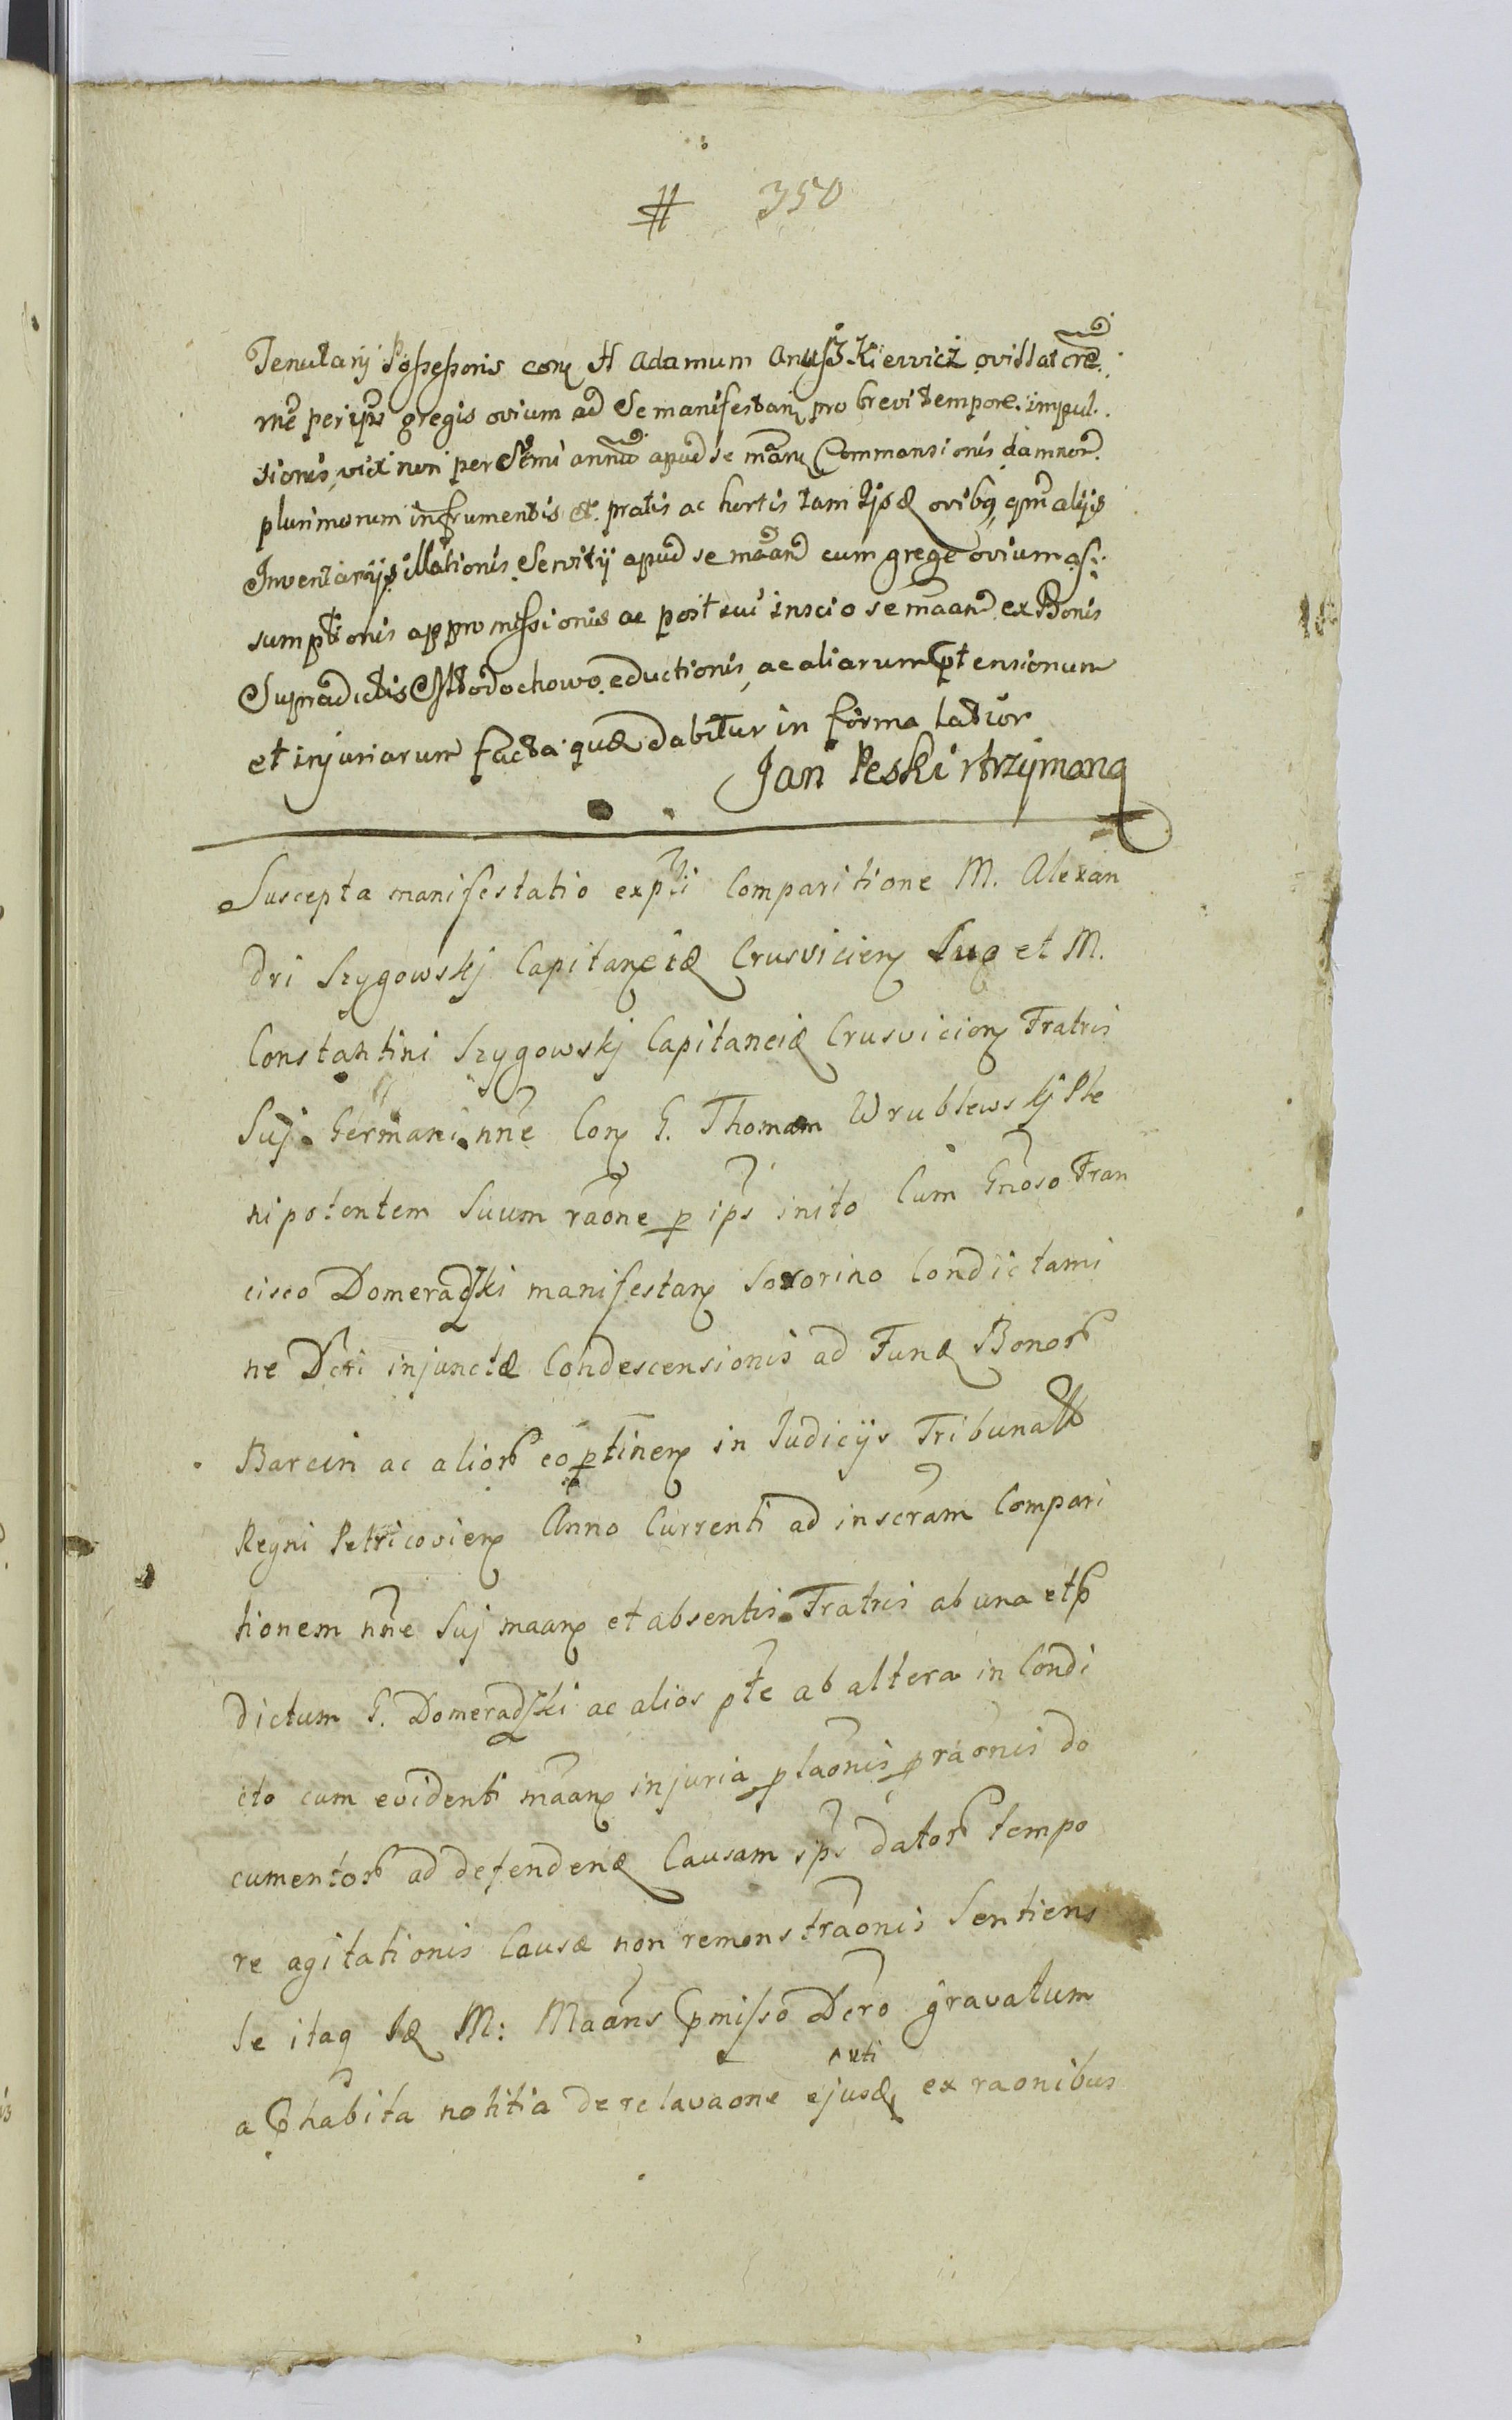 # 350
Tenutarij Possessoris con H Adamum Anuszkiewicz ovillatorē
rnē per ips gregis ovium ad Se manifestan pro brevi tempore impul
sionis, vix non per Semi annū apud se māan Commansionis damnor
plurimorum in frumentis et pratis ac hortis tam ijsd ovibq qm alijs
Inventarijs illationis Servitij apud se māand cum grege ovium as
sumptionis appromissionis ac post sui inscio se māand ex Bonis
Supradictis Młodochowo eductionis, ac aliarum ptensionum
et injuriarum facta quæ dabitur in forma latior
Jan Peski
Suscepta manifestatio expli Comparitione M. Alexan
dri Szygowskj Capitaneiæ Crusvicien Sug et M.
Constantini Szygowskj Capitaneiæ Crusvicien Fratris
Suj Germani nnē Con G. Thomam Wrublewskj Ple
nipotentem Suum raōne p ips inito Cum Gnoso Fran
cisco Domeradzki manifestan Sororino Condictami
ne Dcti injunctæ Condescensionis ad Fund Bonor
Barcin ac alior eo ptinen in Judicijs Tribunall
Regni Petricovien Anno Currenti ad inscram Compari
tionem nnē Suj maan et absentis Fratris ab una et p
dictum G. Domeradzki ac alios pte ab altera in Condi
cto cum evidenti māan injuria plaōnis praōnis do
cumentor ad defendend Causam ips dator tempo
re agitationis Causæ non remonstraōnis Sentiens
Se itaq Id M: Maāns pmisso Dcro gravatum
uti
a habita notitia de relavaōne ejusd ex raonibus